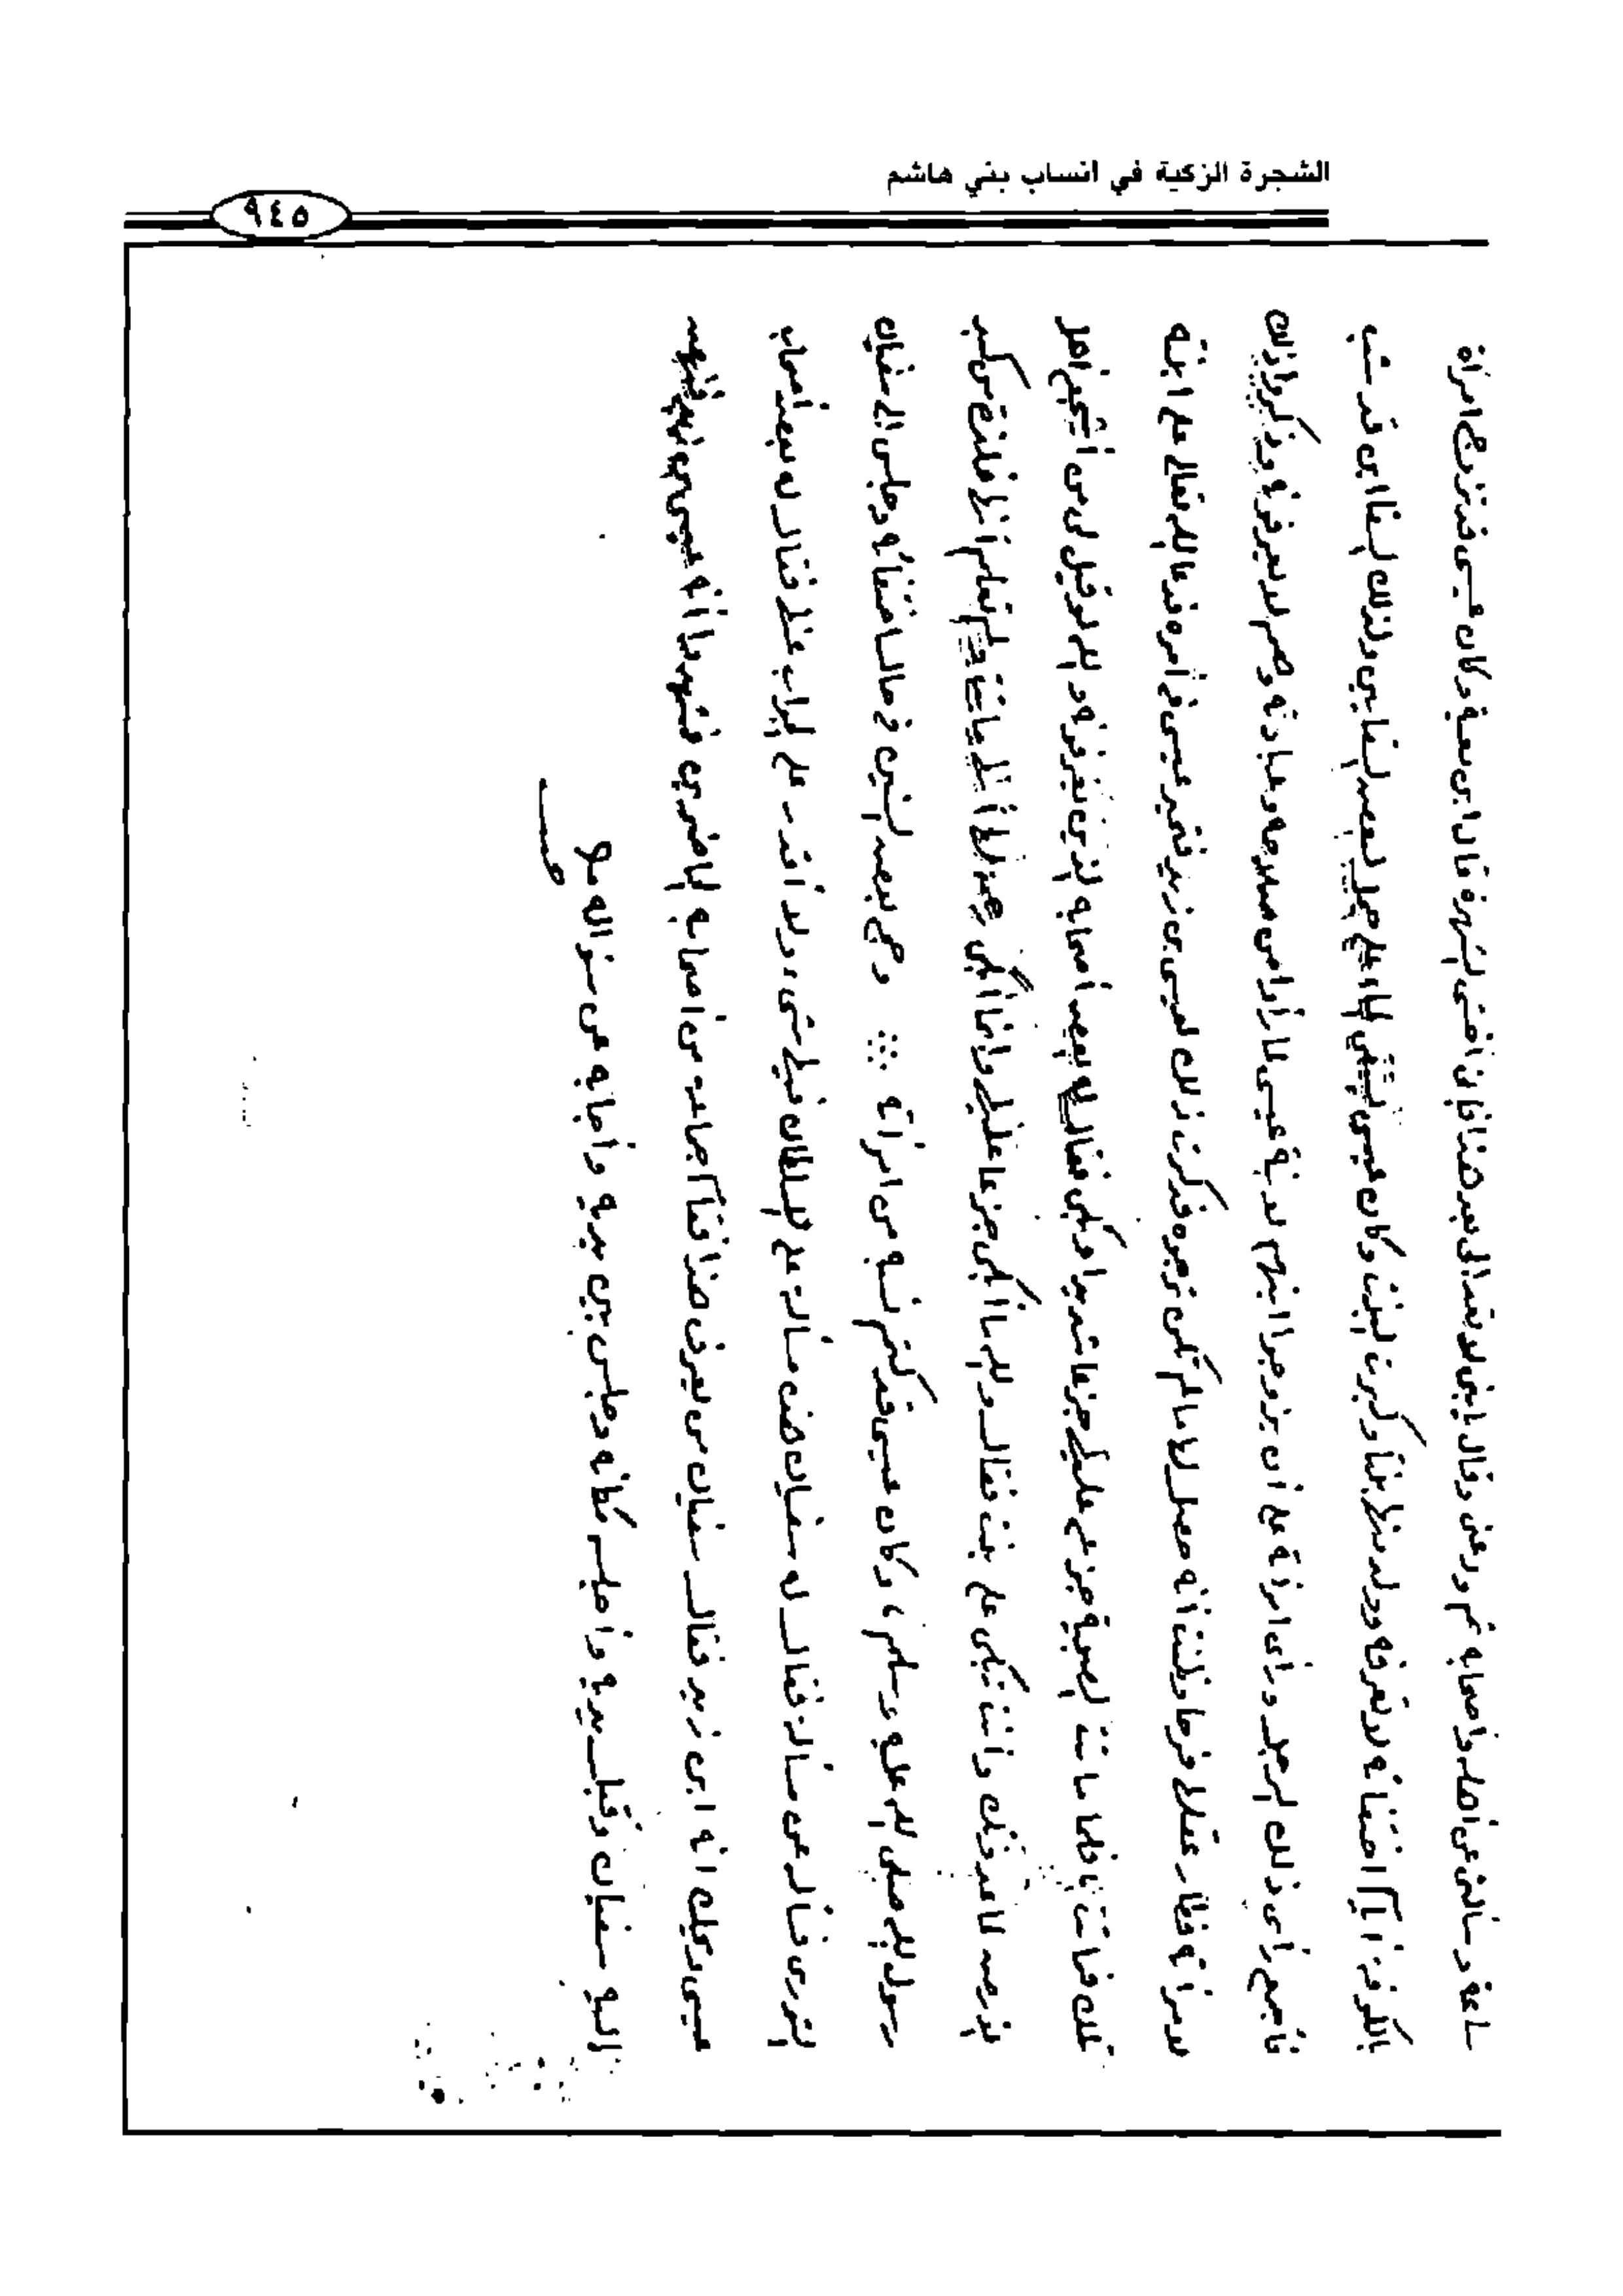 الشجرة الزكية في انساب بني هاشم
٩٤٥
ساعة وسألني عن أهله وأصحابه ثم ودعني وقال يا بني لا تعد الي بعد هذا فاني اخشى الشهرة قال ابن معية وكان عيسى قد تزوج امرأة
بالكوفة ايام اختفائه لا تعرفه وولد منها بنتا وكبرت البنت وكان عيسى يستقي الماء على جمل لبعض السقايين ولذلك السقا ابن قد شب
فأجمع رأي ذلك الرجل ورأي امرأته على أن يزوجا ابنهم لابنة عيسى لما رأوا من صلاحه وعبادته وهم لا يعرفونه وذكروا ذلك
لامرأته فطار عقلها فرحا وظنت أنه حصل لها ما لم تكن ترجوه فذكرت ذلك لعيسى بن زيد فتحير عيسى في أمره فدعا الله تعالى على ابنته
تلك فماتت فلما ماتت الصبية جزع عليها جزعا شديدا وبكى فقال له بعض أصحابه الذين يعرفونه والله لو قيل لي من أشجع اهل
الارض لما عدوتك وأنت تبكي على بنت فقال والله ما أبكي جزعا عليها وانما أبكي رحمة لها انها ماتت ولم تعلم انها فلذة من كبد
رسول الله صلى الله عليه وسلم، وكان عيسى قد كتم نسبه من امرأته وحكي لبعض في حال اختفائه وجلس الى سفيان
الثوري فسأله عن مسألة فقال له سفيان هذه مسألة على السلطان فيها شيء ولا أقدر على الجواب عنها فقال له بعض أصحاب
عيسى ويحك انه ابن زيد فقال سفيان من يعرف هذا فقام جماعة من أصحابه الحاضرين فشهدوا أنه عيسى بن زيد فنهض
اليه سفيان وقبل يديه وأجلسه مكانه وجلس بين يديه وأجابه عن سؤاله